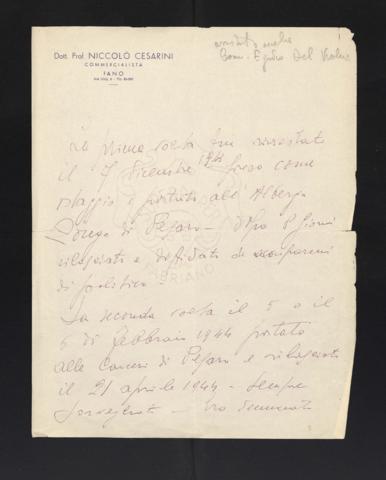 Dott. Prof. NICCOLÒ CESARINI
COMMERCIALISTA
FANO
arrestato anche
Comm. Egidio Del Vecchio
La prima volta fui arrestato
il 7 Dicembre 1943 preso come
ostaggio e portato all'Albergo
di Pesaro - dopo 8 giorni
rilasciato e diffidato di occuparmi
di politica -
La seconda volta il 5 o il
6 di Febbraio 1944 portato
alle Carceri di Pesaro e rilasciato
il 21 aprile 1944 - Sempre
sorvegliato - Ero denunciato
FABRIANO